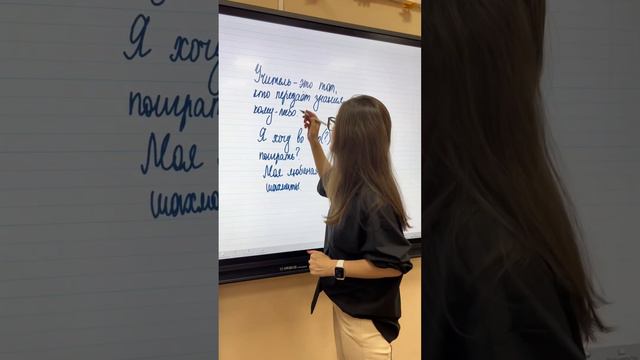 Учитель - это тот,
кто передает знания
кому-либо
Я хочу во
поиграть?
Моя любимая
шахматы